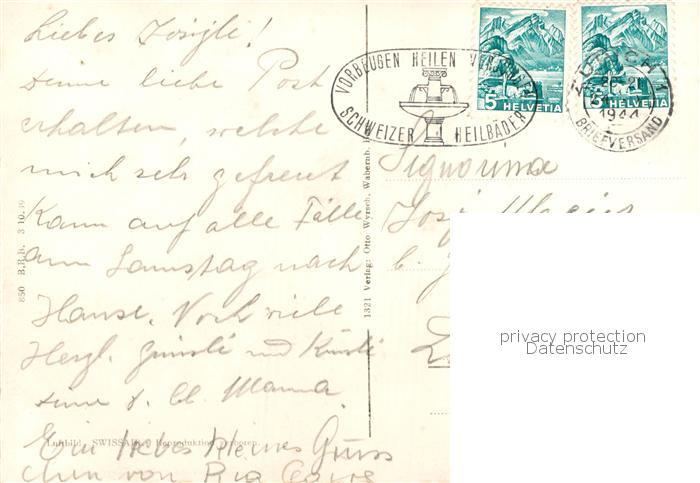 Liebes Josyli!
Deine liebe Post
erhalten, welche
mich sehr gefreut
Kann auf alle Fälle
am Samstag nach
Hause. Noch viele
Herzl. Grüssli und Küssli
deine d. lb. Mamma.
Ein liebes kleines Grüss
chen von Pia
Luftbild SWISSAIR Reproduktion verboten.
850 B.R.B. 3 10.39
1321 Verlag: Otto Wyrsch, Wabernb.
VORBEUGEN HEILEN VERJÜNGEN
SCHWEIZER HEILBÄDER
5 HELVETIA
5 HELVETIA
ZÜRICH 1
1944
BRIEFVERSAND
Signorina
privacy protection
Datenschutz